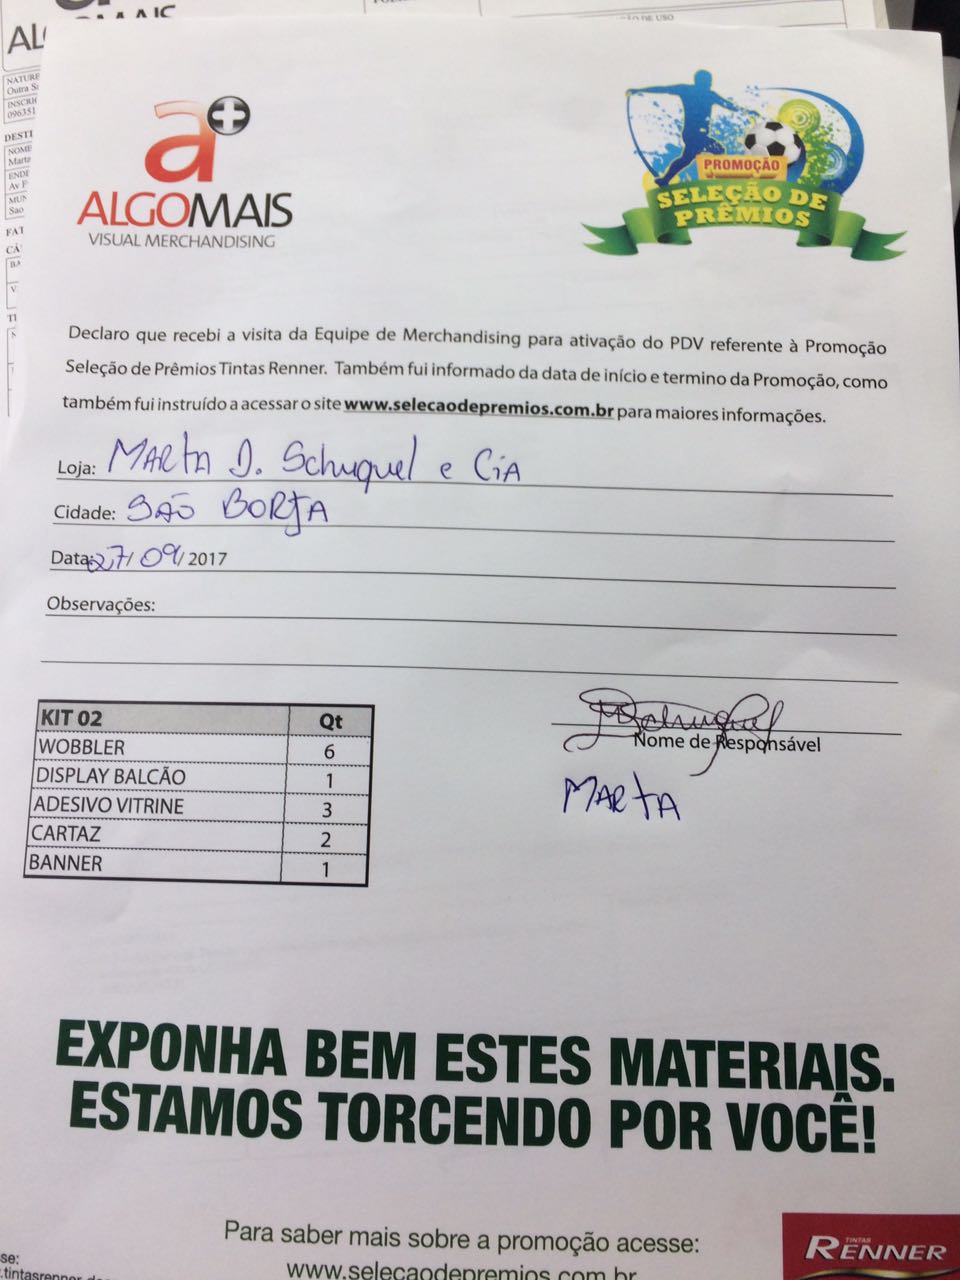 a+
ALGOMAIS
VISUAL MERCHANDISING
PROMOÇÃO
SELEÇÃO DE
PRÊMIOS
Declaro que recebi a visita da Equipe de Merchandising para ativação do PDV referente à Promoção
Seleção de Prêmios Tintas Renner. Também fui informado da data de início e termino da Promoção, como
também fui instruído a acessar o site www.selecaodepremios.com.br para maiores informações.
Loja: MARTA D. Schuquel e CIA
Cidade: SÃO BORJA
Data: 27/ 09/ 2017
Observações:
KIT 02 Qt
WOBBLER 6
DISPLAY BALCÃO 1
ADESIVO VITRINE 3
CARTAZ 2
BANNER 1
Nome de Responsável
MARTA
EXPONHA BEM ESTES MATERIAIS.
ESTAMOS TORCENDO POR VOCÊ!
Para saber mais sobre a promoção acesse:
www.selecaodepremios.com.br
TINTAS
RENNER